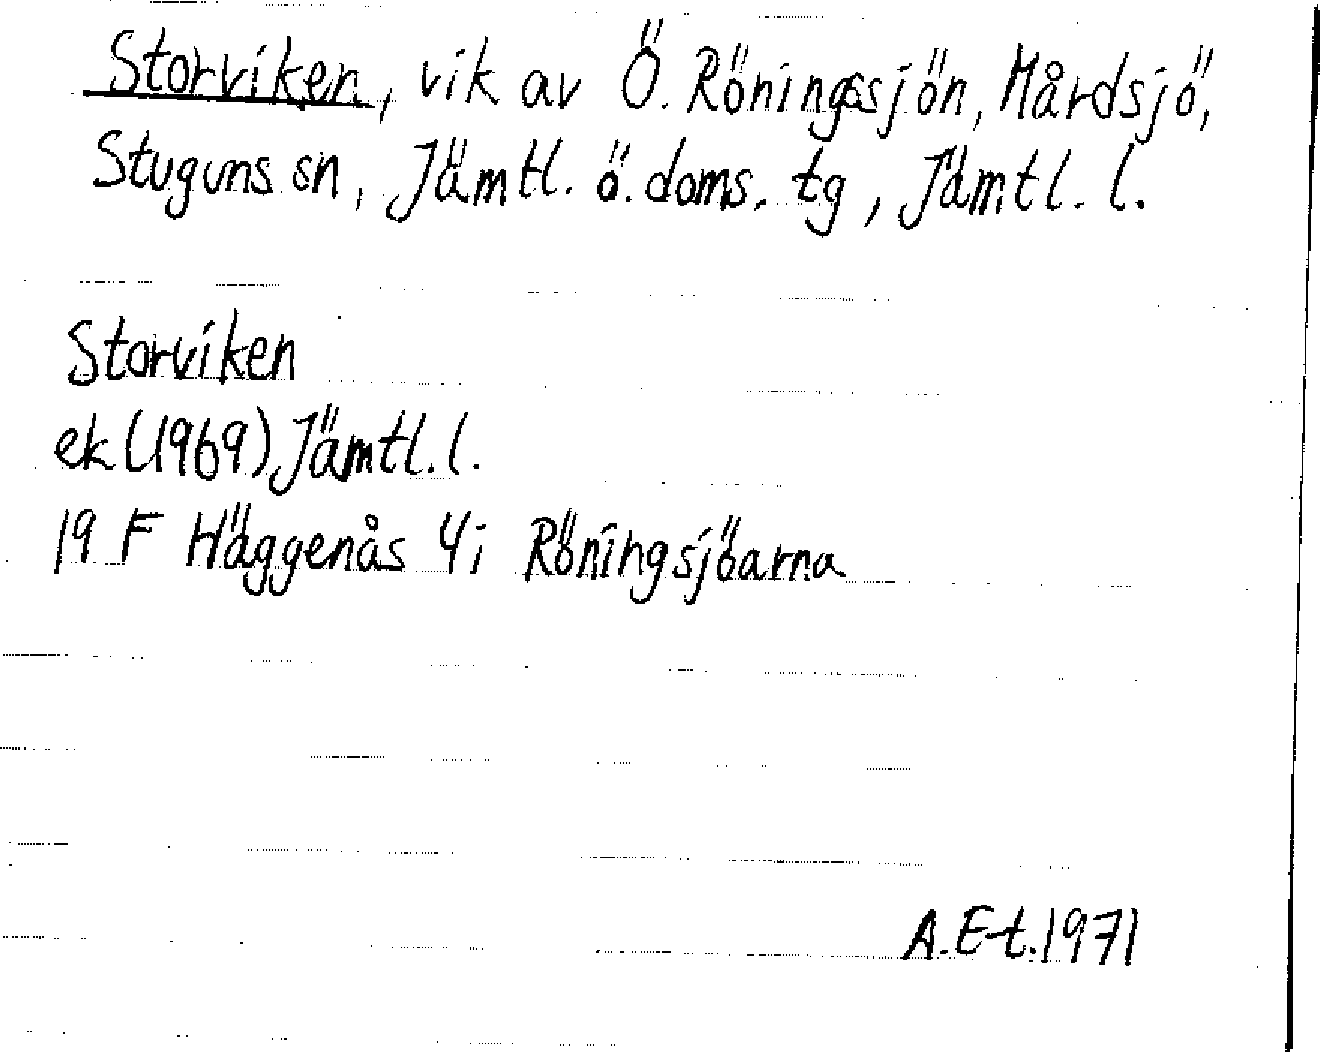 Storviken, vik av Ö. Röningssjön, Mårdsjö,
Stuguns sn, Jämtl. ö. doms. tg, Jämtl. l.
Storviken
ek (1969) Jämtl. l.
19 F Häggenås 4i Röningsjöarna
A. E-t. 1971